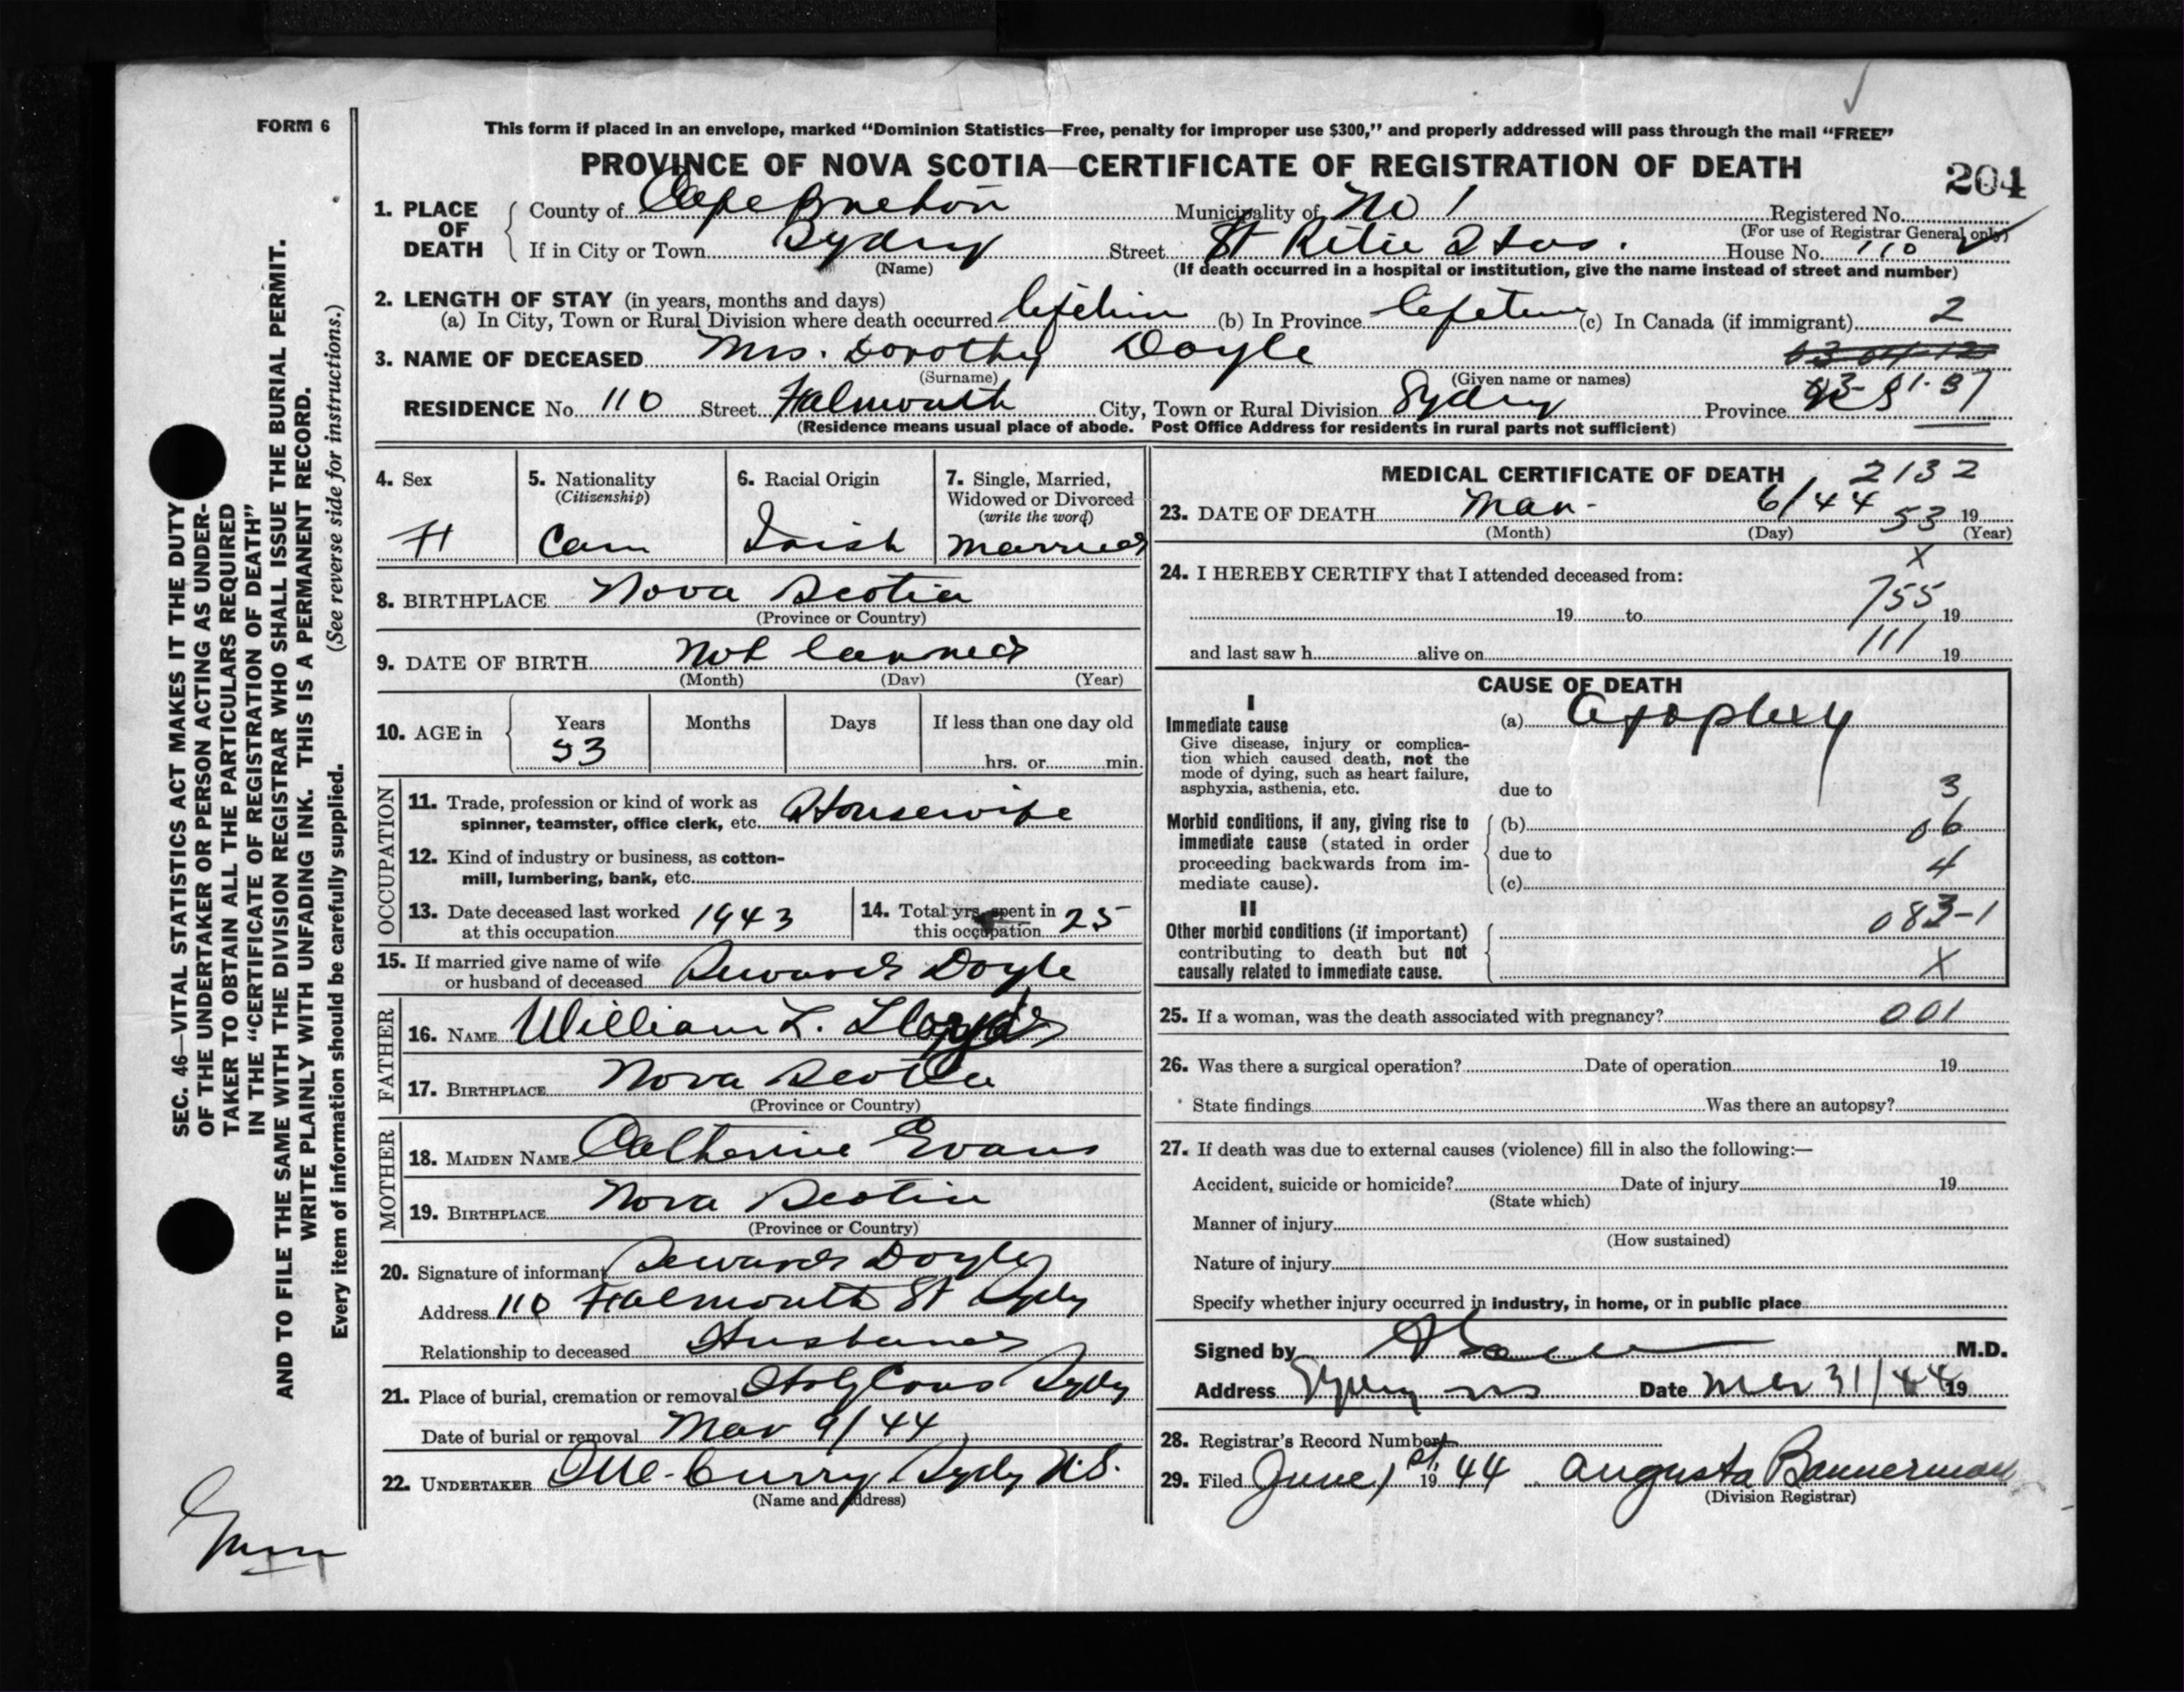 FORM 6
This form if placed in an envelope, marked “Dominion Statistics—Free, penalty for improper use $300,” and properly addressed will pass through the mail “FREE”
PROVINCE OF NOVA SCOTIA—CERTIFICATE OF REGISTRATION OF DEATH
204
1. PLACE OF DEATH
County of Cape Breton Municipality of No 1 Registered No.
(For use of Registrar General only)
If in City or Town Sydney Street St Hos. House No. 110
(Name)
(If death occurred in a hospital or institution, give the name instead of street and number)
2. LENGTH OF STAY (in years, months and days)
(a) In City, Town or Rural Division where death occurred lifetime (b) In Province lifetime (c) In Canada (if immigrant) 2
3. NAME OF DECEASED Mrs. Dorothy Doyle
(Surname) (Given name or names)
RESIDENCE No. 110 Street Falmouth City, Town or Rural Division Sydney Province
(Residence means usual place of abode. Post Office Address for residents in rural parts not sufficient)
4. Sex
F
5. Nationality
(Citizenship)
Can
6. Racial Origin
Irish
7. Single, Married,
Widowed or Divorced
(write the word)
Married
8. BIRTHPLACE Nova Scotia
(Province or Country)
9. DATE OF BIRTH Not
(Month) (Day) (Year)
10. AGE in Years Months Days If less than one day old
53 hrs. or min.
OCCUPATION
11. Trade, profession or kind of work as
spinner, teamster, office clerk, etc. Housewife
12. Kind of industry or business, as cotton-
mill, lumbering, bank, etc.
13. Date deceased last worked
at this occupation 1943
14. Total yrs. spent in
this occupation 25
15. If married give name of wife
or husband of deceased Doyle
FATHER
16. NAME William L.
17. BIRTHPLACE Nova Scotia
(Province or Country)
MOTHER
18. MAIDEN NAME Catherine Evans
19. BIRTHPLACE Nova Scotia
(Province or Country)
20. Signature of informant Doyle
Address 110 Falmouth St Sydney
Relationship to deceased Husband
21. Place of burial, cremation or removal Holy Cross Sydney
Date of burial or removal Mar 9/44
22. UNDERTAKER Curry Sydney N.S.
(Name and address)
MEDICAL CERTIFICATE OF DEATH 2132
23. DATE OF DEATH Mar 6/44 53 19
(Month) (Day) (Year)
X
24. I HEREBY CERTIFY that I attended deceased from:
19 to 755 19
and last saw h alive on 111 19
CAUSE OF DEATH
I
Immediate cause
Give disease, injury or complica-
tion which caused death, not the
mode of dying, such as heart failure,
asphyxia, asthenia, etc.
(a) Apoplexy
due to 3
Morbid conditions, if any, giving rise to
immediate cause (stated in order
proceeding backwards from im-
mediate cause).
(b) 06
due to 4
(c)
II
Other morbid conditions (if important)
contributing to death but not
causally related to immediate cause.
083-1
X
25. If a woman, was the death associated with pregnancy? 001
26. Was there a surgical operation? Date of operation 19
State findings Was there an autopsy?
27. If death was due to external causes (violence) fill in also the following:—
Accident, suicide or homicide? Date of injury 19
(State which)
Manner of injury
(How sustained)
Nature of injury
Specify whether injury occurred in industry, in home, or in public place
Signed by M.D.
Address Sydney NS Date 31/44 19
28. Registrar's Record Number
29. Filed June 1st. 19 44 Augusta Bannerman
(Division Registrar)
SEC. 46—VITAL STATISTICS ACT MAKES IT THE DUTY
OF THE UNDERTAKER OR PERSON ACTING AS UNDER-
TAKER TO OBTAIN ALL THE PARTICULARS REQUIRED
IN THE “CERTIFICATE OF REGISTRATION OF DEATH”
AND TO FILE THE SAME WITH THE DIVISION REGISTRAR WHO SHALL ISSUE THE BURIAL PERMIT.
WRITE PLAINLY WITH UNFADING INK. THIS IS A PERMANENT RECORD.
Every item of information should be carefully supplied. (See reverse side for instructions.)